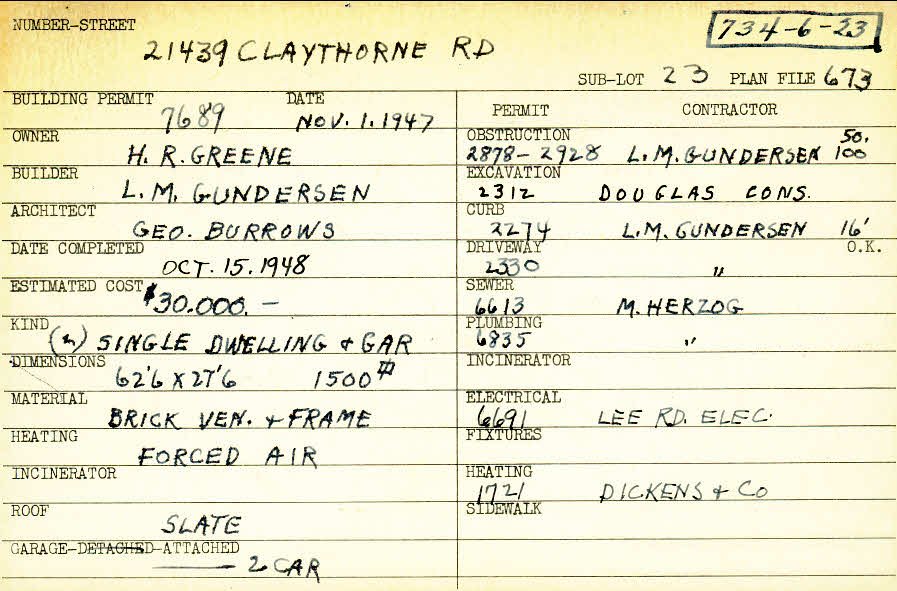 NUMBER-STREET
734-6-23
21439 CLAYTHORNE RD
SUB-LOT 23 PLAN FILE 673
BUILDING PERMIT DATE
7689 NOV. 1. 1947
OWNER
H. R. GREENE
BUILDER
L. M. GUNDERSEN
ARCHITECT
GEO. BURROWS
DATE COMPLETED
OCT. 15. 1948
ESTIMATED COST $30.000. —
KIND
(n) SINGLE DWELLING & GAR
DIMENSIONS
62'6 X 27'6 1500 #
MATERIAL
BRICK VEN. & FRAME
HEATING
FORCED AIR
INCINERATOR
ROOF
SLATE
GARAGE-DETACHED-ATTACHED
2 CAR
PERMIT CONTRACTOR
OBSTRUCTION 50.
2878-2928 L.M. GUNDERSEN 100
EXCAVATION
2312 DOUGLAS CONS.
CURB
2274 L.M. GUNDERSEN 16'
DRIVEWAY O.K.
2330 "
SEWER
6613 M. HERZOG
PLUMBING
6835 "
INCINERATOR
ELECTRICAL
6691 LEE RD. ELEC.
FIXTURES
HEATING
1721 DICKENS & CO
SIDEWALK